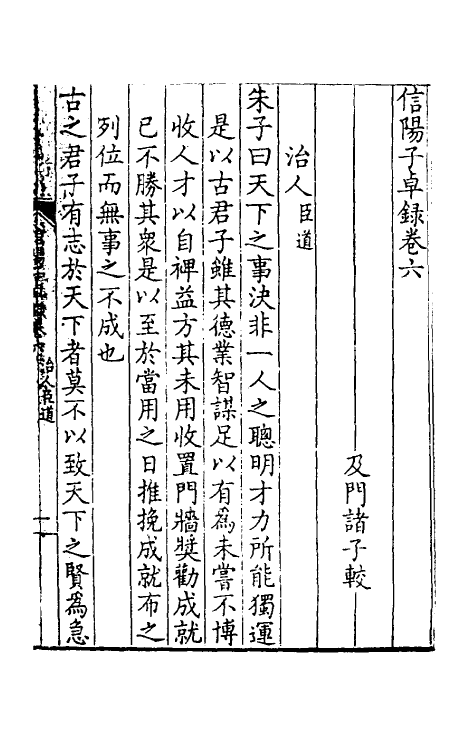 信陽子卓録巻六
及門諸子較
治人臣道
朱子曰天下之事決非一人之聰明才力所能獨運
是以古君子雖其德業智謀足以有爲未嘗不博
收人才以自裨益方其未用收置門牆奬勸成就
已不勝其衆是以至於當用之日推挽成就布之
列位而無事之不成也
古之君子有志於天下者莫不以致天下之賢爲急
治人臣道
一